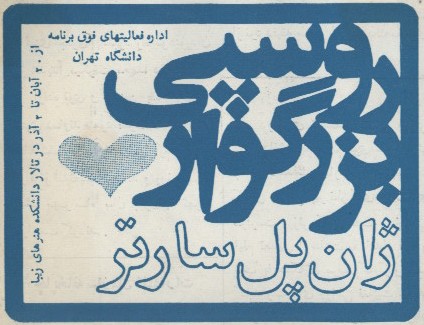 اداره فعالیتهای فوق برنامه
دانشگاه تهران
روسپی
بزرگوار
ژان پل سارتر
از ۲۰ آبان تا ۳ آذر در تالار دانشکده هنرهای زیبا